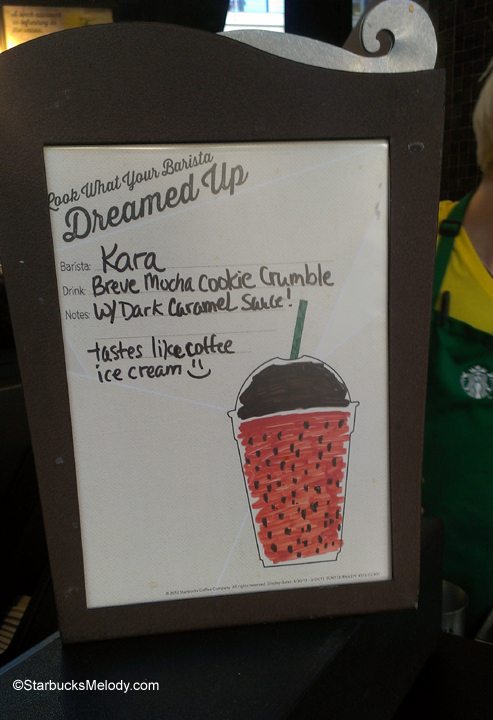 Look What Your Barista
Dreamed Up
Barista: Kara
Drink: Breve Mocha Cookie Crumble
Notes: w/ Dark Caramel Sauce!
tastes like coffee
ice cream
© 2013 Starbucks Coffee Company. All rights reserved.
©StarbucksMelody.com